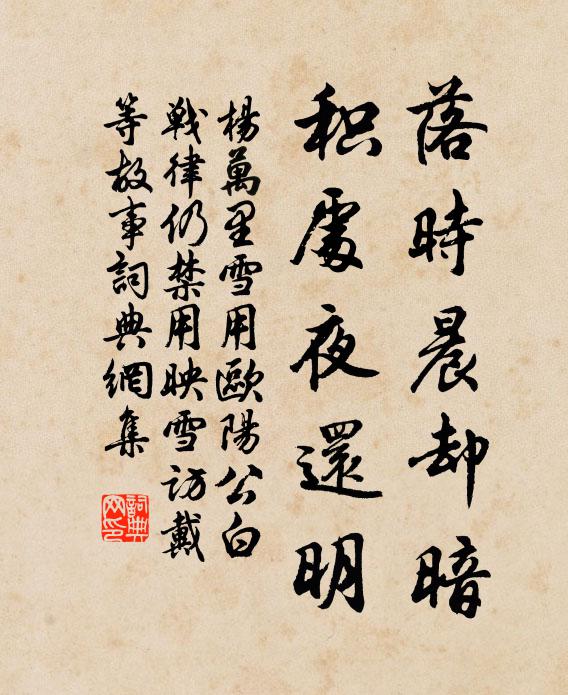 落時晨却暗
积處夜還明
楊萬里雪用歐陽公白
戦律仍禁用映雪訪戴
等故事詞典網集
詞典
网印